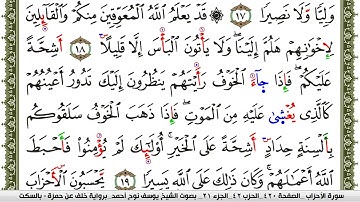 وَلِيًّا وَلَا نَصِيرًا ١٧ قَدْ يَعْلَمُ اللَّهُ الْمُعَوِّقِينَ مِنكُمْ وَالْقَائِلِينَ
لِإِخْوَانِهِمْ هَلُمَّ إِلَيْنَا وَلَا يَأْتُونَ الْبَأْسَ إِلَّا قَلِيلًا ١٨ أَشِحَّةً
عَلَيْكُمْ فَإِذَا جَاءَ الْخَوْفُ رَأَيْتَهُمْ يَنظُرُونَ إِلَيْكَ تَدُورُ أَعْيُنُهُمْ
كَالَّذِي يُغْشَىٰ عَلَيْهِ مِنَ الْمَوْتِ فَإِذَا ذَهَبَ الْخَوْفُ سَلَقُوكُم
بِأَلْسِنَةٍ حِدَادٍ أَشِحَّةً عَلَى الْخَيْرِ أُولَٰئِكَ لَمْ يُؤْمِنُوا فَأَحْبَطَ
اللَّهُ أَعْمَالَهُمْ وَكَانَ ذَٰلِكَ عَلَى اللَّهِ يَسِيرًا ١٩ يَحْسَبُونَ الْأَحْزَابَ
سورة الأحزاب _ الصفحة ٤٢٠ _ الحزب ٤٢ _ الجزء ٢١ _ بصوت الشيخ يوسف نوح أحمد _ برواية خلف عن حمزة - بالسكت